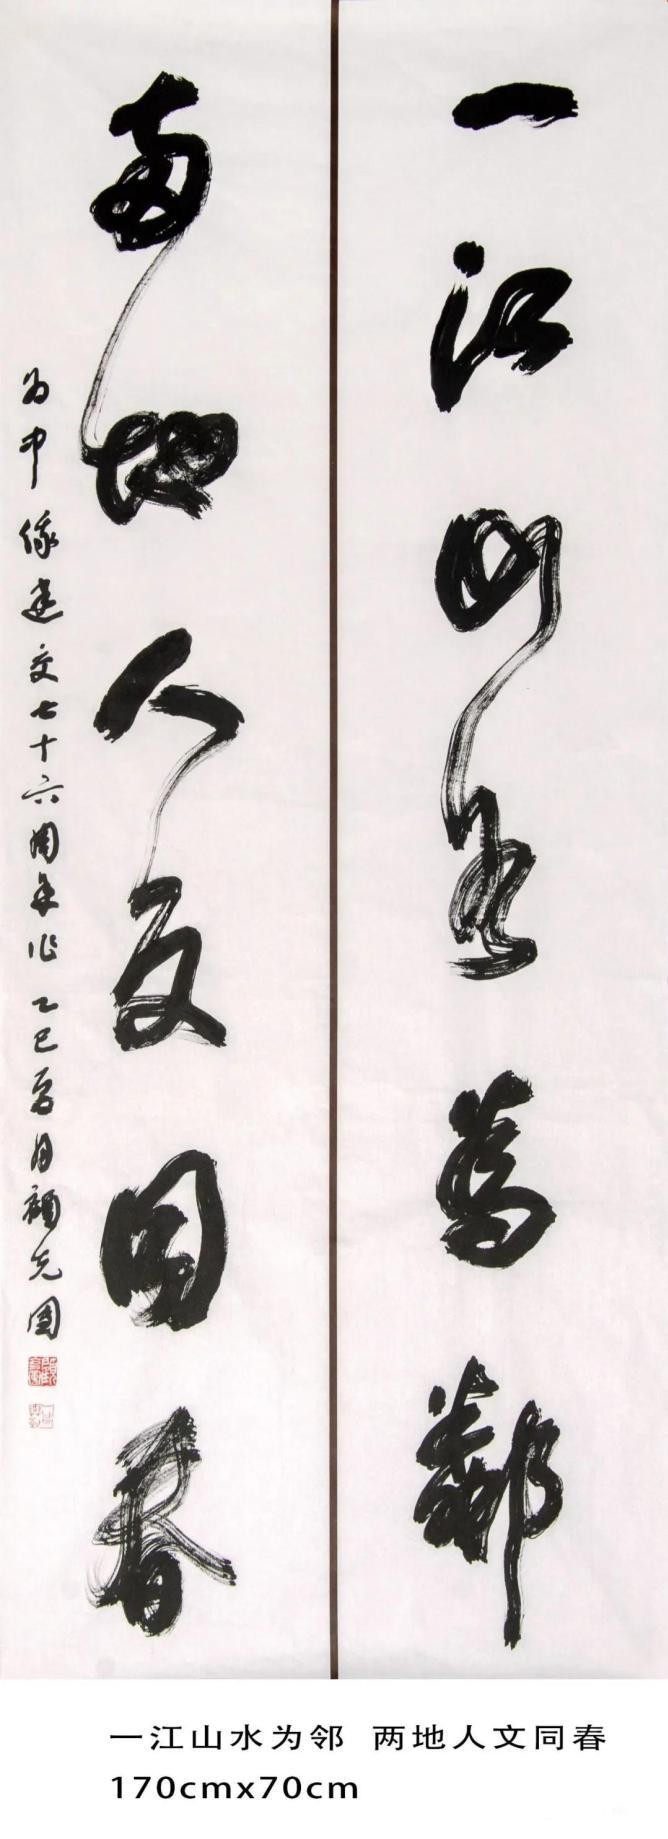 一江山水為鄰
两地人文同春
为中俄建交七十六周年作 乙巳酉月顾克国
一江山水为邻 两地人文同春
170cmx70cm